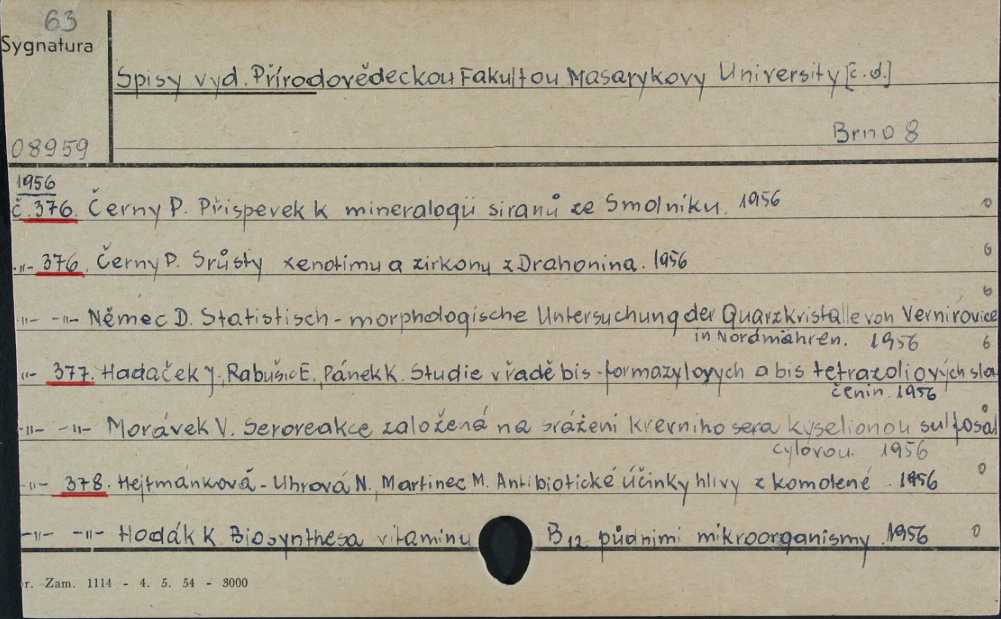 63
Sygnatura
Spisy vyd. Přírodovědeckou Fakultou Masarykovy University [c.d.]
Brno 8
08959
1956
č. 376. Černy P. Přispevek k mineralogii siranů ze Smolniku. 1956 0
-"- 376. Černy P. Srůsty xenotimu a zirkonu z Drahonina. 1956 6
6
-"- -"- Němec D. Statistisch-morphologische Untersuchung der Quarzkristalle von Vernirovice
in Nordmähren. 1956 6
-"- 377. Hadaček J., Rabušic E., Pánek K. Studie v řadě bis-formazylových a bis tetrazoliových sla
čenin. 1956
-"- -"- Morávek V. Seroreakce založená na sráženi krevniho sera kyselionou sulfosal
cylovou. 1956
-"- 378. Hejtmánková-Uhrová N., Martinec M. Antibiotické účinky hlivy z komolené. 1956 0
-"- -"- Hodák K. Biosynthesa vitaminu B12 půdnimi mikroorganismy. 1956 0
r. Zam. 1114 - 4. 5. 54 - 3000